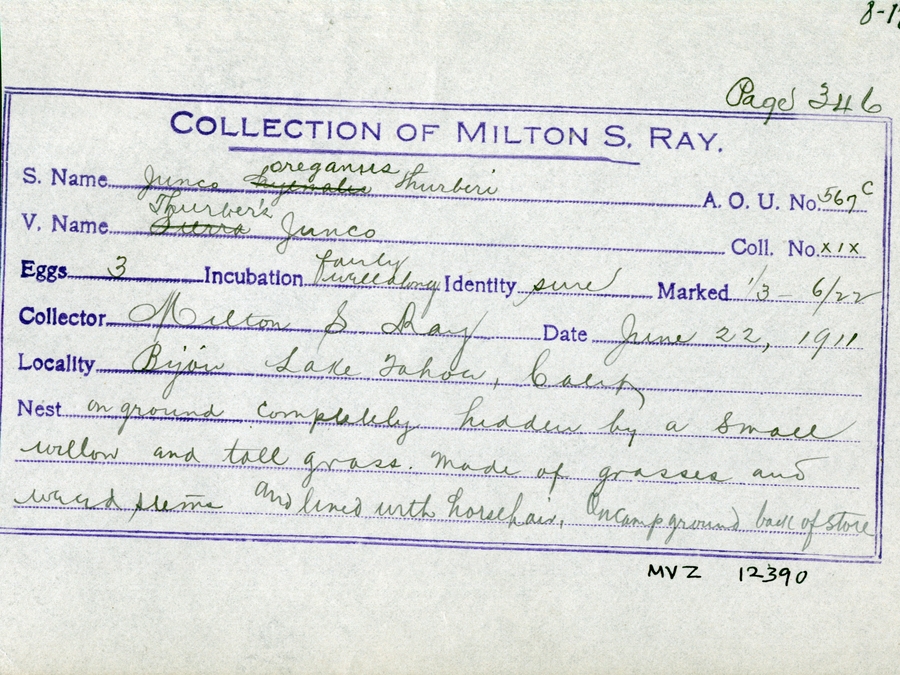 8-1
Page 346
COLLECTION OF MILTON S. RAY.
oreganus
S. Name Junco hyemalis thurberi A. O. U. No. 567c
Thurber's
V. Name Sierra Junco Coll. No. XIX
fairly
Eggs 3 Incubation well along Identity sure Marked 1/3 - 6/22
Collector Milton S Ray Date June 22, 1911
Locality Bijou Lake Tahoe, Calif
Nest on ground completely hidden by a small
willow and tall grass. Made of grasses and
weed stems and lined with horsehair. On camp ground back of store
MVZ 12390